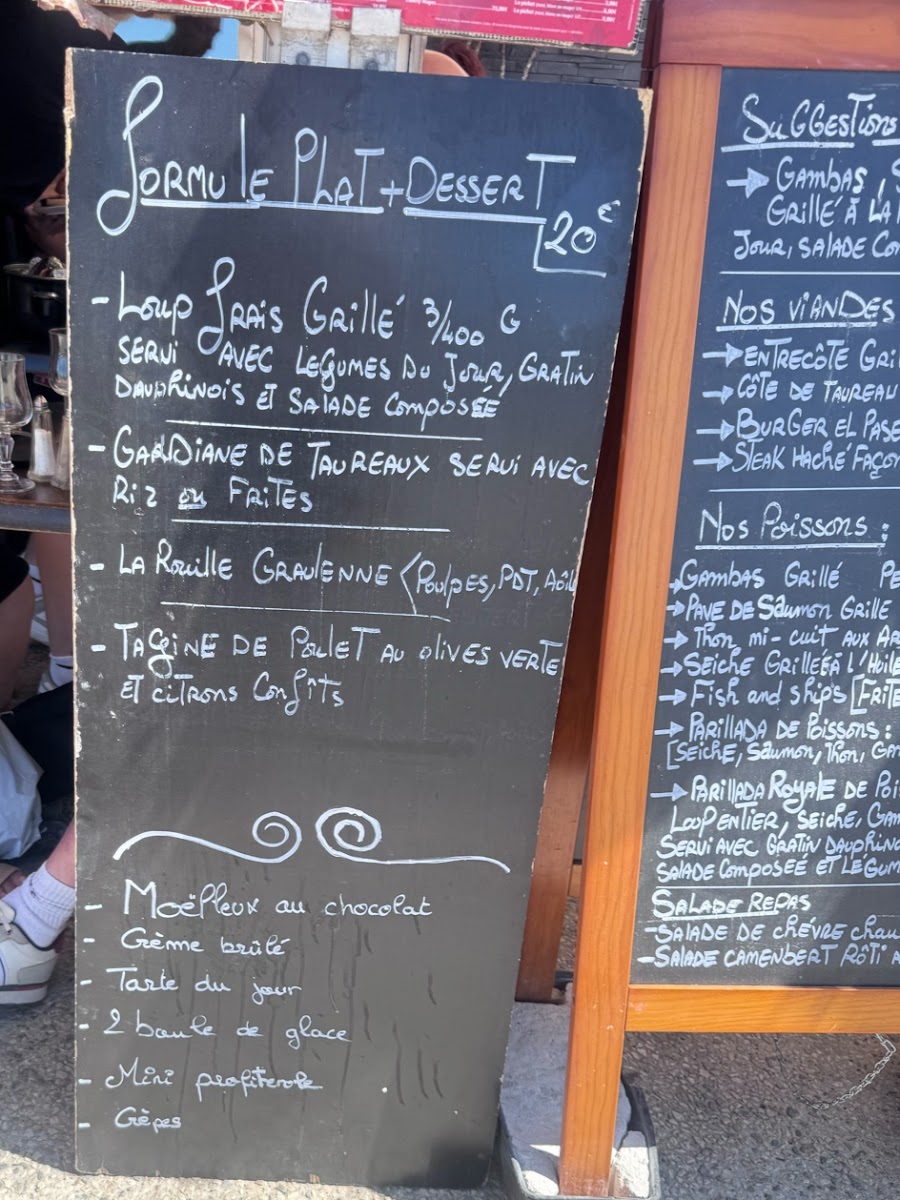 Formule Plat + Dessert
20€
- Loup frais Grillé 3/400 G
servi avec légumes du Jour, Gratin
Dauphinois et Salade Composée
- Gardiane de Taureaux servi avec
Riz ou Frites
- La Rouille Graulenne (Poulpes, PDT, Aöli
- Tagine de Poulet au olives verte
et citrons Confîts
- Moëlleux au chocolat
- Crème brûlé
- Tarte du jour
- 2 boule de glace
- Mini profiterole
- Crêpes
Suggestions
→ Gambas, S
Grillé à la
Jour, salade Co
Nos viandes
→ entrecôte Gri
→ Côte de Taureau
→ Burger el Pase
→ Steak Haché Façon
Nos Poissons :
→ Gambas Grillé Pe
→ Pave de Saumon Grille
→ Thon mi-cuit aux Ar
→ Seiche Grilléé à l'Huile
→ Fish and ship's [Frite
→ Parillada de Poissons :
[Seiche, Saumon, Thon, Ga
→ Parillada Royale de Poi
Loup entier, Seiche, Gam
Servi avec Gratin Dauphino
Salade Composeé et légum
Salade Repas
- Salade de chévre chau
- Salade Camenbert Rôti a